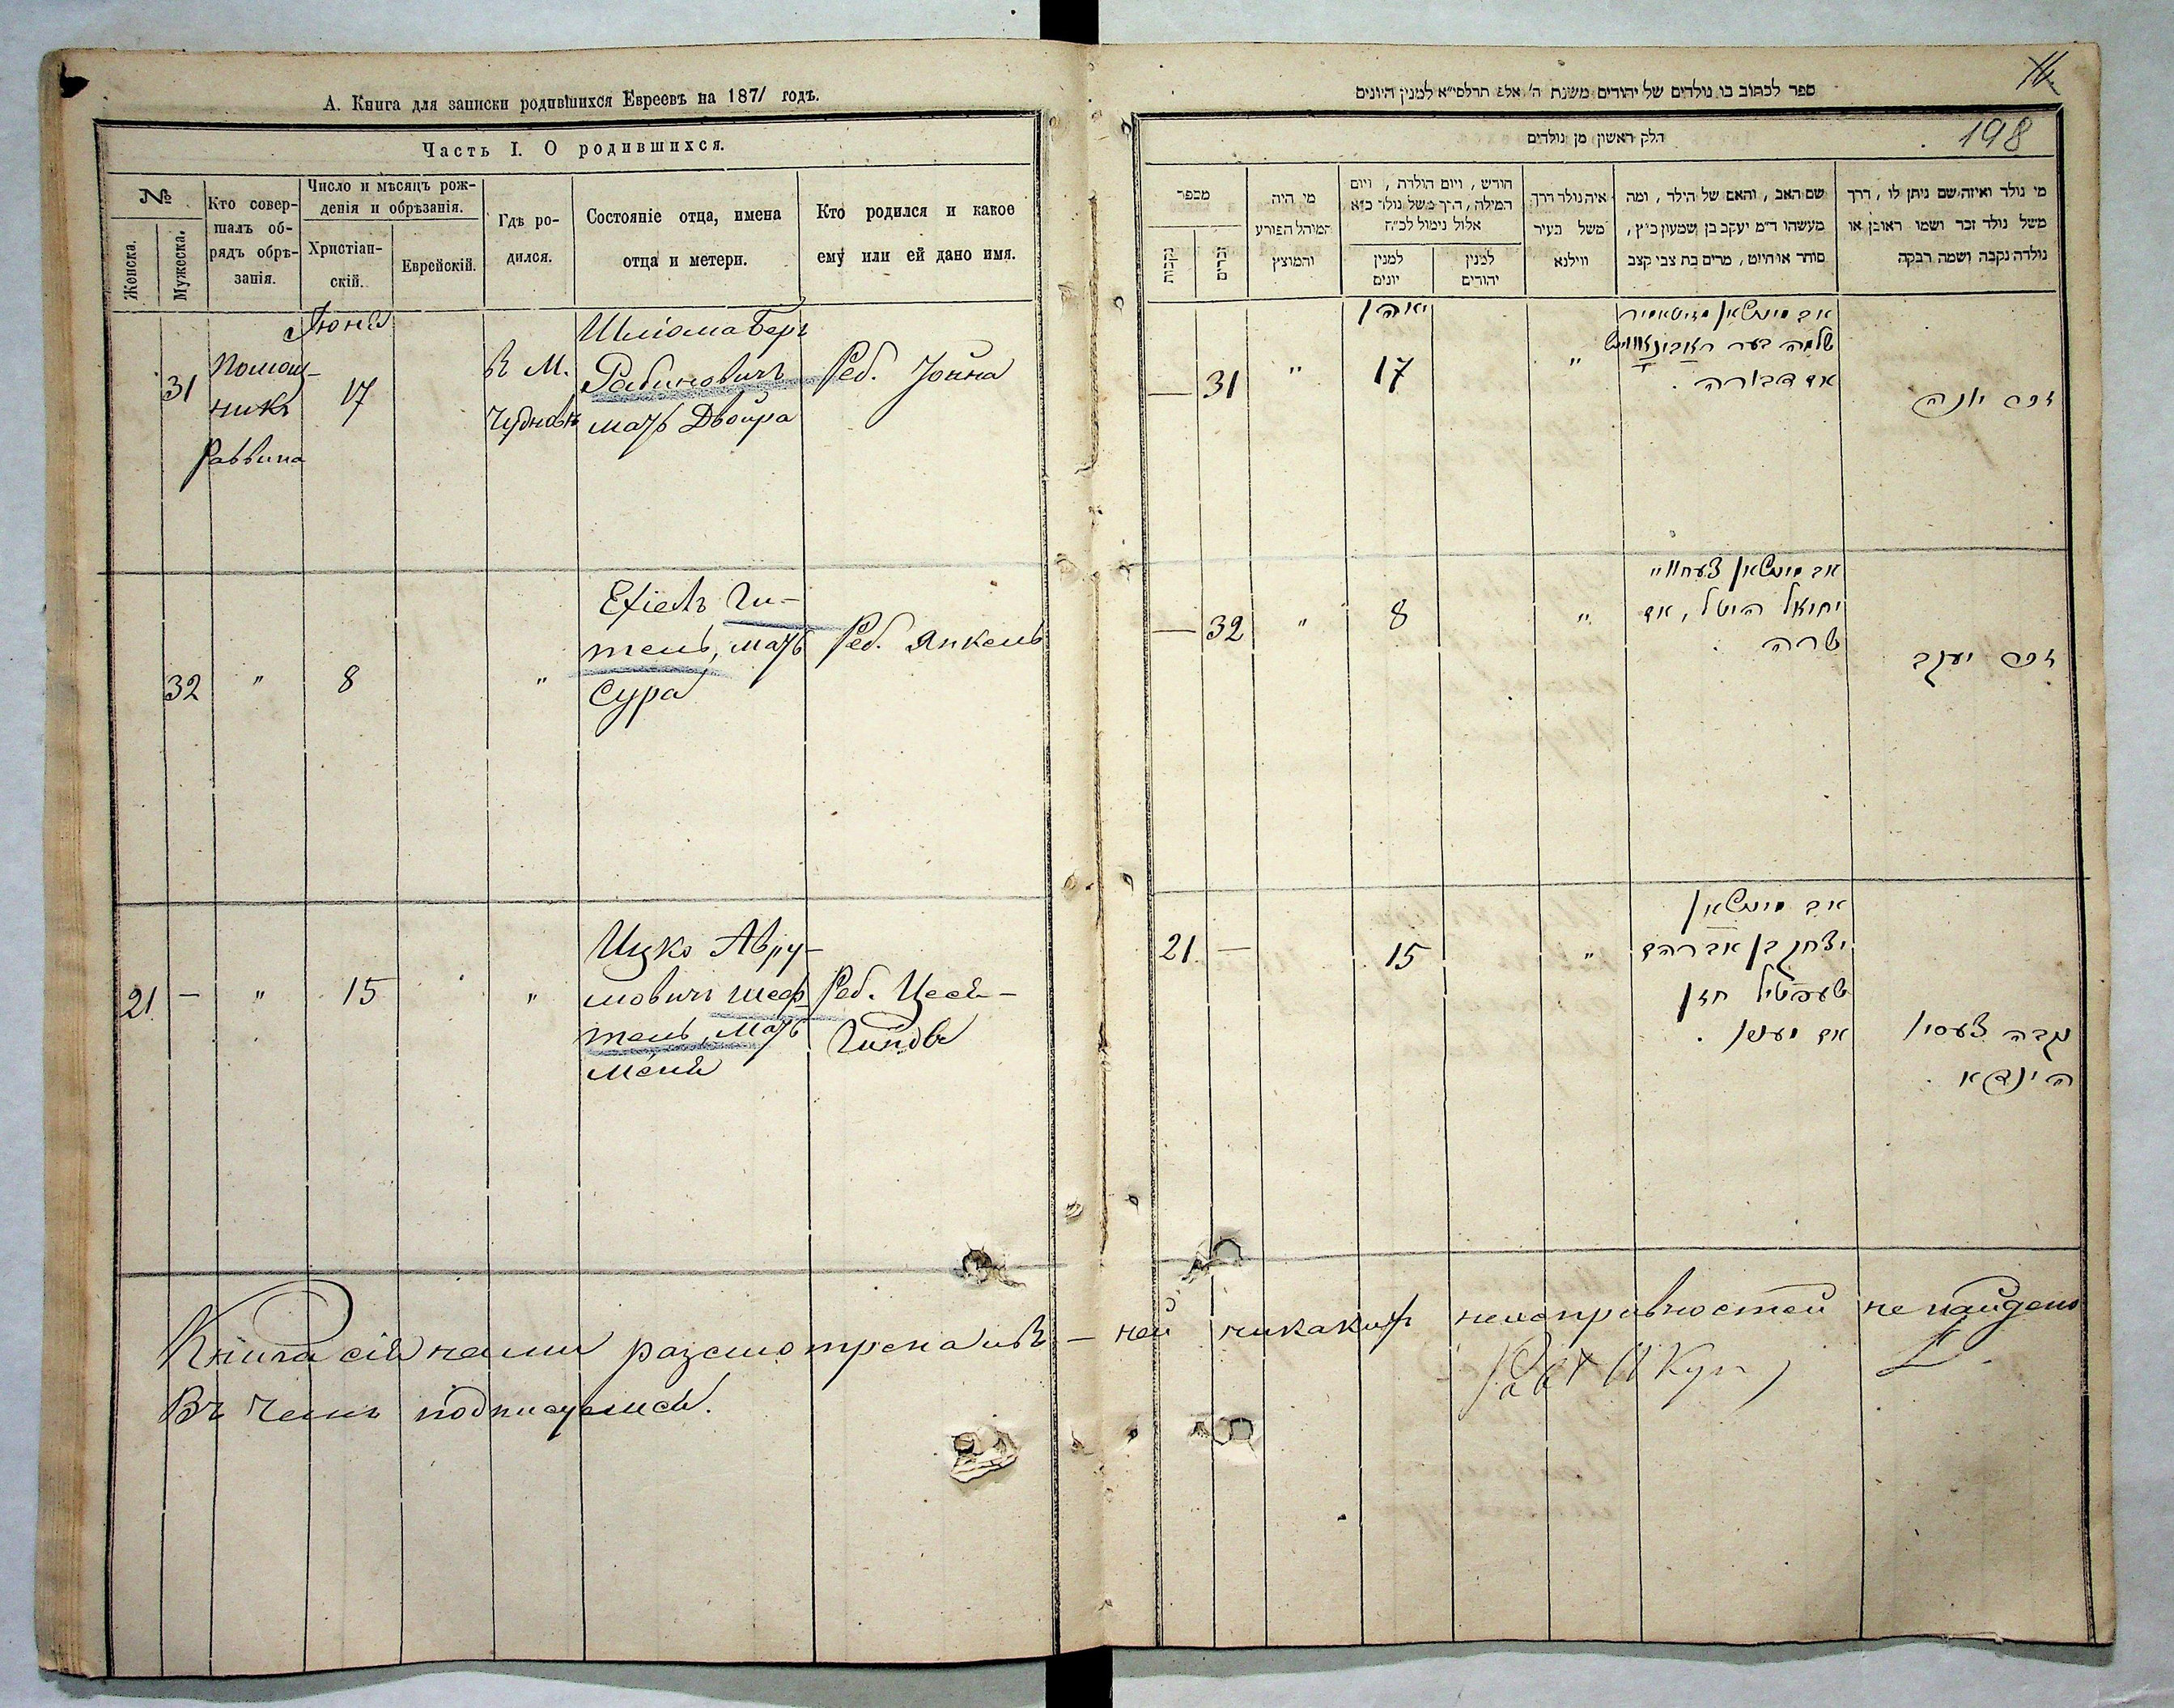 А. Книга для записки родившихся Евреевъ на 1871 годъ.
Часть I. О родившихся.
№
Женска.
Мужеска.
Кто совер-
шалъ об-
рядъ обрѣ-
занія.
Число и мѣсяцъ рож-
денія и обрѣзанія.
Христіан-
скій.
Еврейскій.
Гдѣ ро-
дился.
Состояніе отца, имена
отца и метери.
Кто родился и какое
ему или ей дано имя.
Іюня
31
Помощ-
никъ
Раввина
17
В М.
Чудновѣ
Шліома Беръ
Рабиновичъ
мать Двойра
Реб. Іойна
32
"
8
"
Ехіель Ги-
тель, мать
Сура
Реб. Янкель
21
—
"
15
"
Ицко Авру-
мовичъ Шеф-
тель, мать
Реб. Цеся-
Гинда
Книга сія нами разсмотрена ивъ - ней никакихъ неисправностей не найдено
Въ чемъ подписуемся.
ספר לכתוב בו נולדים של יהודים משנת ה' אלפ תרלסי"א למנין היונים
198
חלק ראשון מן נולדים
מספר
נקבות
זכרים
מי היה
המוהל הפורע
והמוצץ
חודש, ויום הולדת, ויום
המילה, הרך משל נולד כ"א
אלול נימול לכ"ח
למנין
יונים
למנין
יהודים
איה נולד דרך
משל בעיר
ווילנא
שם האב, והאם של הילד, ומה
מעשהו ד"מ יעקב בן שמעון כ"ץ,
סוחר או חייט, מרים בת צבי קצב
מי נולד ואיזה שם ניתן לו, דרך
משל נולד זכר ושמו ראובן או
נולדה נקבה ושמה רבקה
31
"
17
"
שלמה בער ראבינאוויטש
אם דבורה
זכר יונה
32
"
8
"
יחיאל היטל, אם
שרה
זכר יעקב
21
—
15
"
יצחק בן אברהם
שעפטיל חזן
נקבה צעסי
הינדא